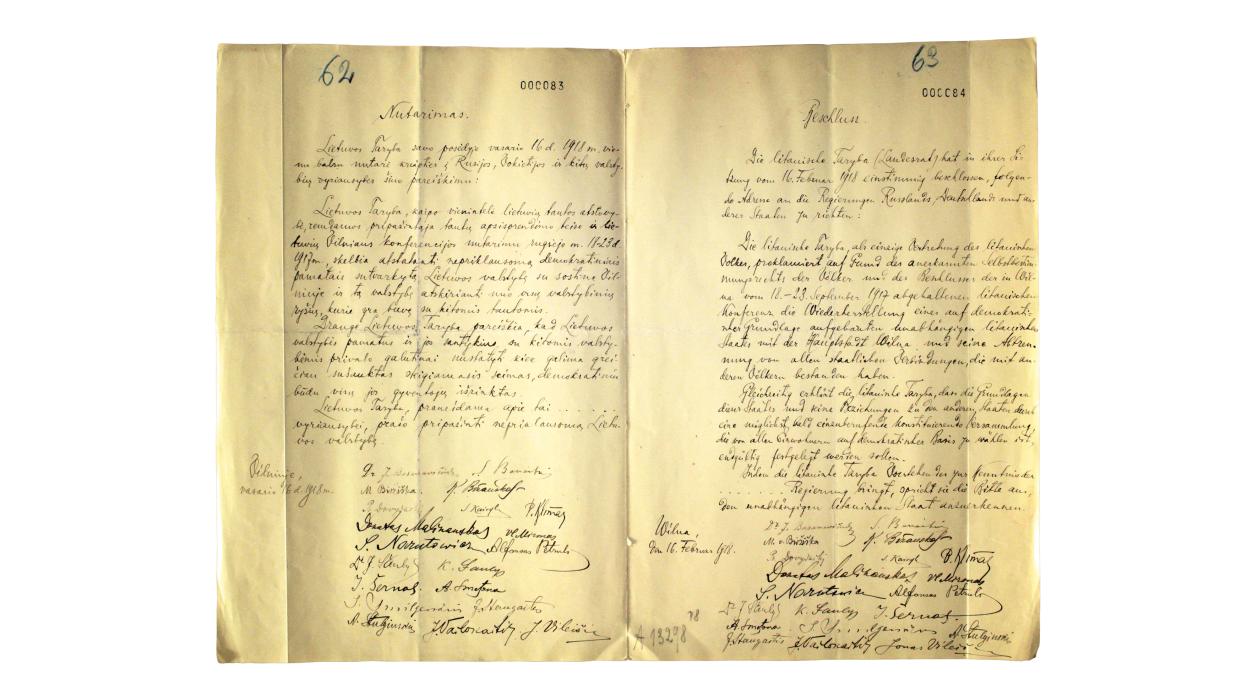 62
000083
Nutarimas.
Lietuvos Taryba savo posėdyje vasario 16 d. 1918 m. vie-
nu balsu nutarė kreiptis į Rusijos, Vokietijos ir kitų valsty-
bių vyriausybes šiuo pareiškimu:
Lietuvos Taryba, kaipo vienintelė lietuvių tautos atstovy-
bė, remdamos pripažintąja tautų apsisprendimo teise ir lie-
tuvių Vilniaus konferencijos nutarimu rugsėjo m. 18-23 d.
1917 m., skelbia atstatanti nepriklausomą demokratiniais
pamatais sutvarkytą Lietuvos valstybę su sostine Vil-
niuje ir tą valstybę atskirianti nuo visų valstybinių
ryšių, kurie yra buvę su kitomis tautomis.
Drauge Lietuvos Taryba pareiškia, kad Lietuvos
valstybės pamatus ir jos santykius su kitomis valsty-
bėmis privalo galutinai nustatyti kiek galima grei-
čiau sušauktas steigiamasis seimas, demokratiniu
būdu visų jos gyventojų išrinktas.
Lietuvos Taryba, pranešdama apie tai . . . . . . .
vyriausybei, prašo pripažinti nepriklausomą Lietu-
vos valstybę.
Vilniuje,
vasario 16 d. 1918 m.
Dr J. Basanavičius S. Banaitis
M. Biržiška K. Bizauskas
P. Dovydaitis S. Kairys P. Klimas
Donatas Malinauskas Vl. Mironas
S. Narutowicz Alfonsas Petrulis
Dr J. Šaulys K. Šaulys
J. Šernas A. Smetona
J. Smilgevičius J. Staugaitis
A. Stulginskis J. Vailokaitis J. Vileišis
63
000084
Beschluss.
Die litauische Taryba (Landesrat) hat in ihrer Si-
tzung vom 16. Februar 1918 einstimmig beschlossen, folgen-
de Adresse an die Regierungen Russlands, Deutschlands und an-
derer Staaten zu richten:
Die litauische Taryba, als einzige Vertretung des litauischen
Volkes, proklamiert auf Grund des anerkannten Selbstbestim-
mungsrechts der Völker und des Beschlusses der in Wil-
na vom 18.-23. September 1917 abgehaltenen litauischen
Konferenz die Wiederherstellung eines auf demokrati-
scher Grundlage aufgebauten unabhängigen litauischen
Staates mit der Hauptstadt Wilna und seine Abtren-
nung von allen staatlichen Verbindungen, die mit an-
deren Völkern bestanden haben.
Gleichzeitig erklärt die litauische Taryba, dass die Grundlagen
dieses Staates und seine Beziehungen zu den anderen Staaten durch
eine möglichst bald einzuberufende konstituierende Versammlung,
die von allen Einwohnern auf demokratischer Basis zu wählen ist,
endgültig festgelegt werden sollen.
Indem die litauische Taryba Vorstehendes zur Kenntnis der
. . . . . . . . . Regierung bringt, spricht sie die Bitte aus,
den unabhängigen litauischen Staat anzuerkennen.
Wilna,
den 16. Februar 1918.
Dr J. Basanavičius S. Banaitis
M. v. Biržiška K. Bizauskas
P. Dovydaitis S. Kairys P. Klimas
Donatas Malinauskas Vl. Mironas
S. Narutowicz Alfonsas Petrulis
Dr J. Šaulys K. Šaulys J. Šernas
A. Smetona J. Smilgevičius A. Stulginskis
J. Staugaitis J. Vailokaitis Jonas Vileišis
A 1329878